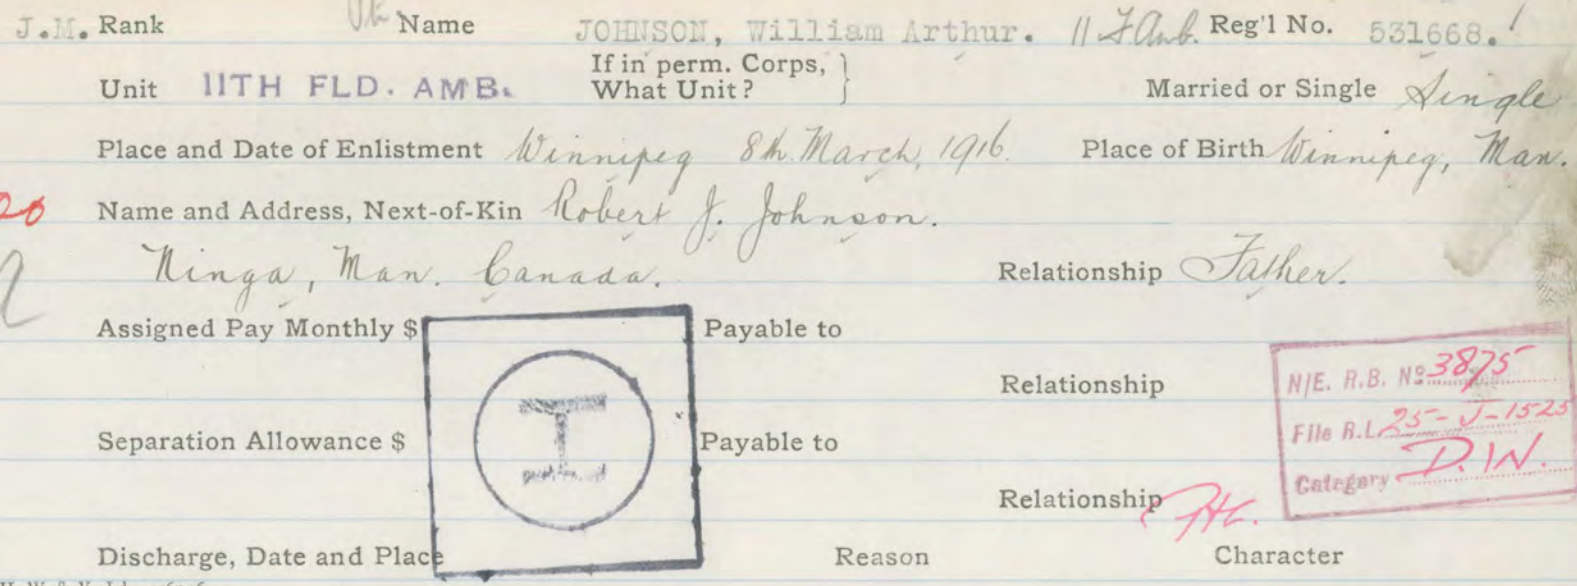 J.M. Rank Pte Name JOHNSON, William Arthur. 11 F. Amb. Reg'l No. 531668.
Unit 11TH FLD. AMB. If in perm. Corps, What Unit? } Married or Single Single
Place and Date of Enlistment Winnipeg 8th. March, 1916. Place of Birth Winnipeg, Man.
Name and Address, Next-of-Kin Robert J. Johnson.
Ninga, Man. Canada. Relationship Father.
Assigned Pay Monthly $ Payable to
Relationship
N/E. R.B. No 3875
File R.L. 25-J-1525
Category D.W.
Separation Allowance $ I Payable to
Relationship
Discharge, Date and Place Reason Character